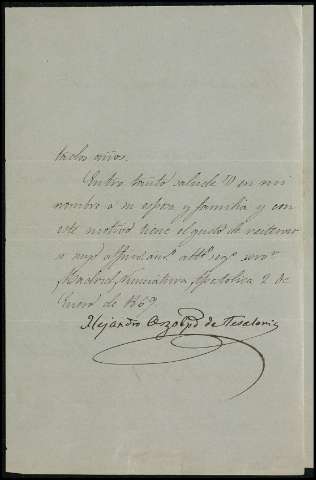 tados años.
Entre tanto salude V en mi
nombre a su esposa y familia y con
este motivo tiene el gusto de reiterarse
a su att.º seg.º serv.r
Madrid, Nunciatura Apostolica 2 de
Enero de 1869.
Alejandro Arzobpo de Tesalonica